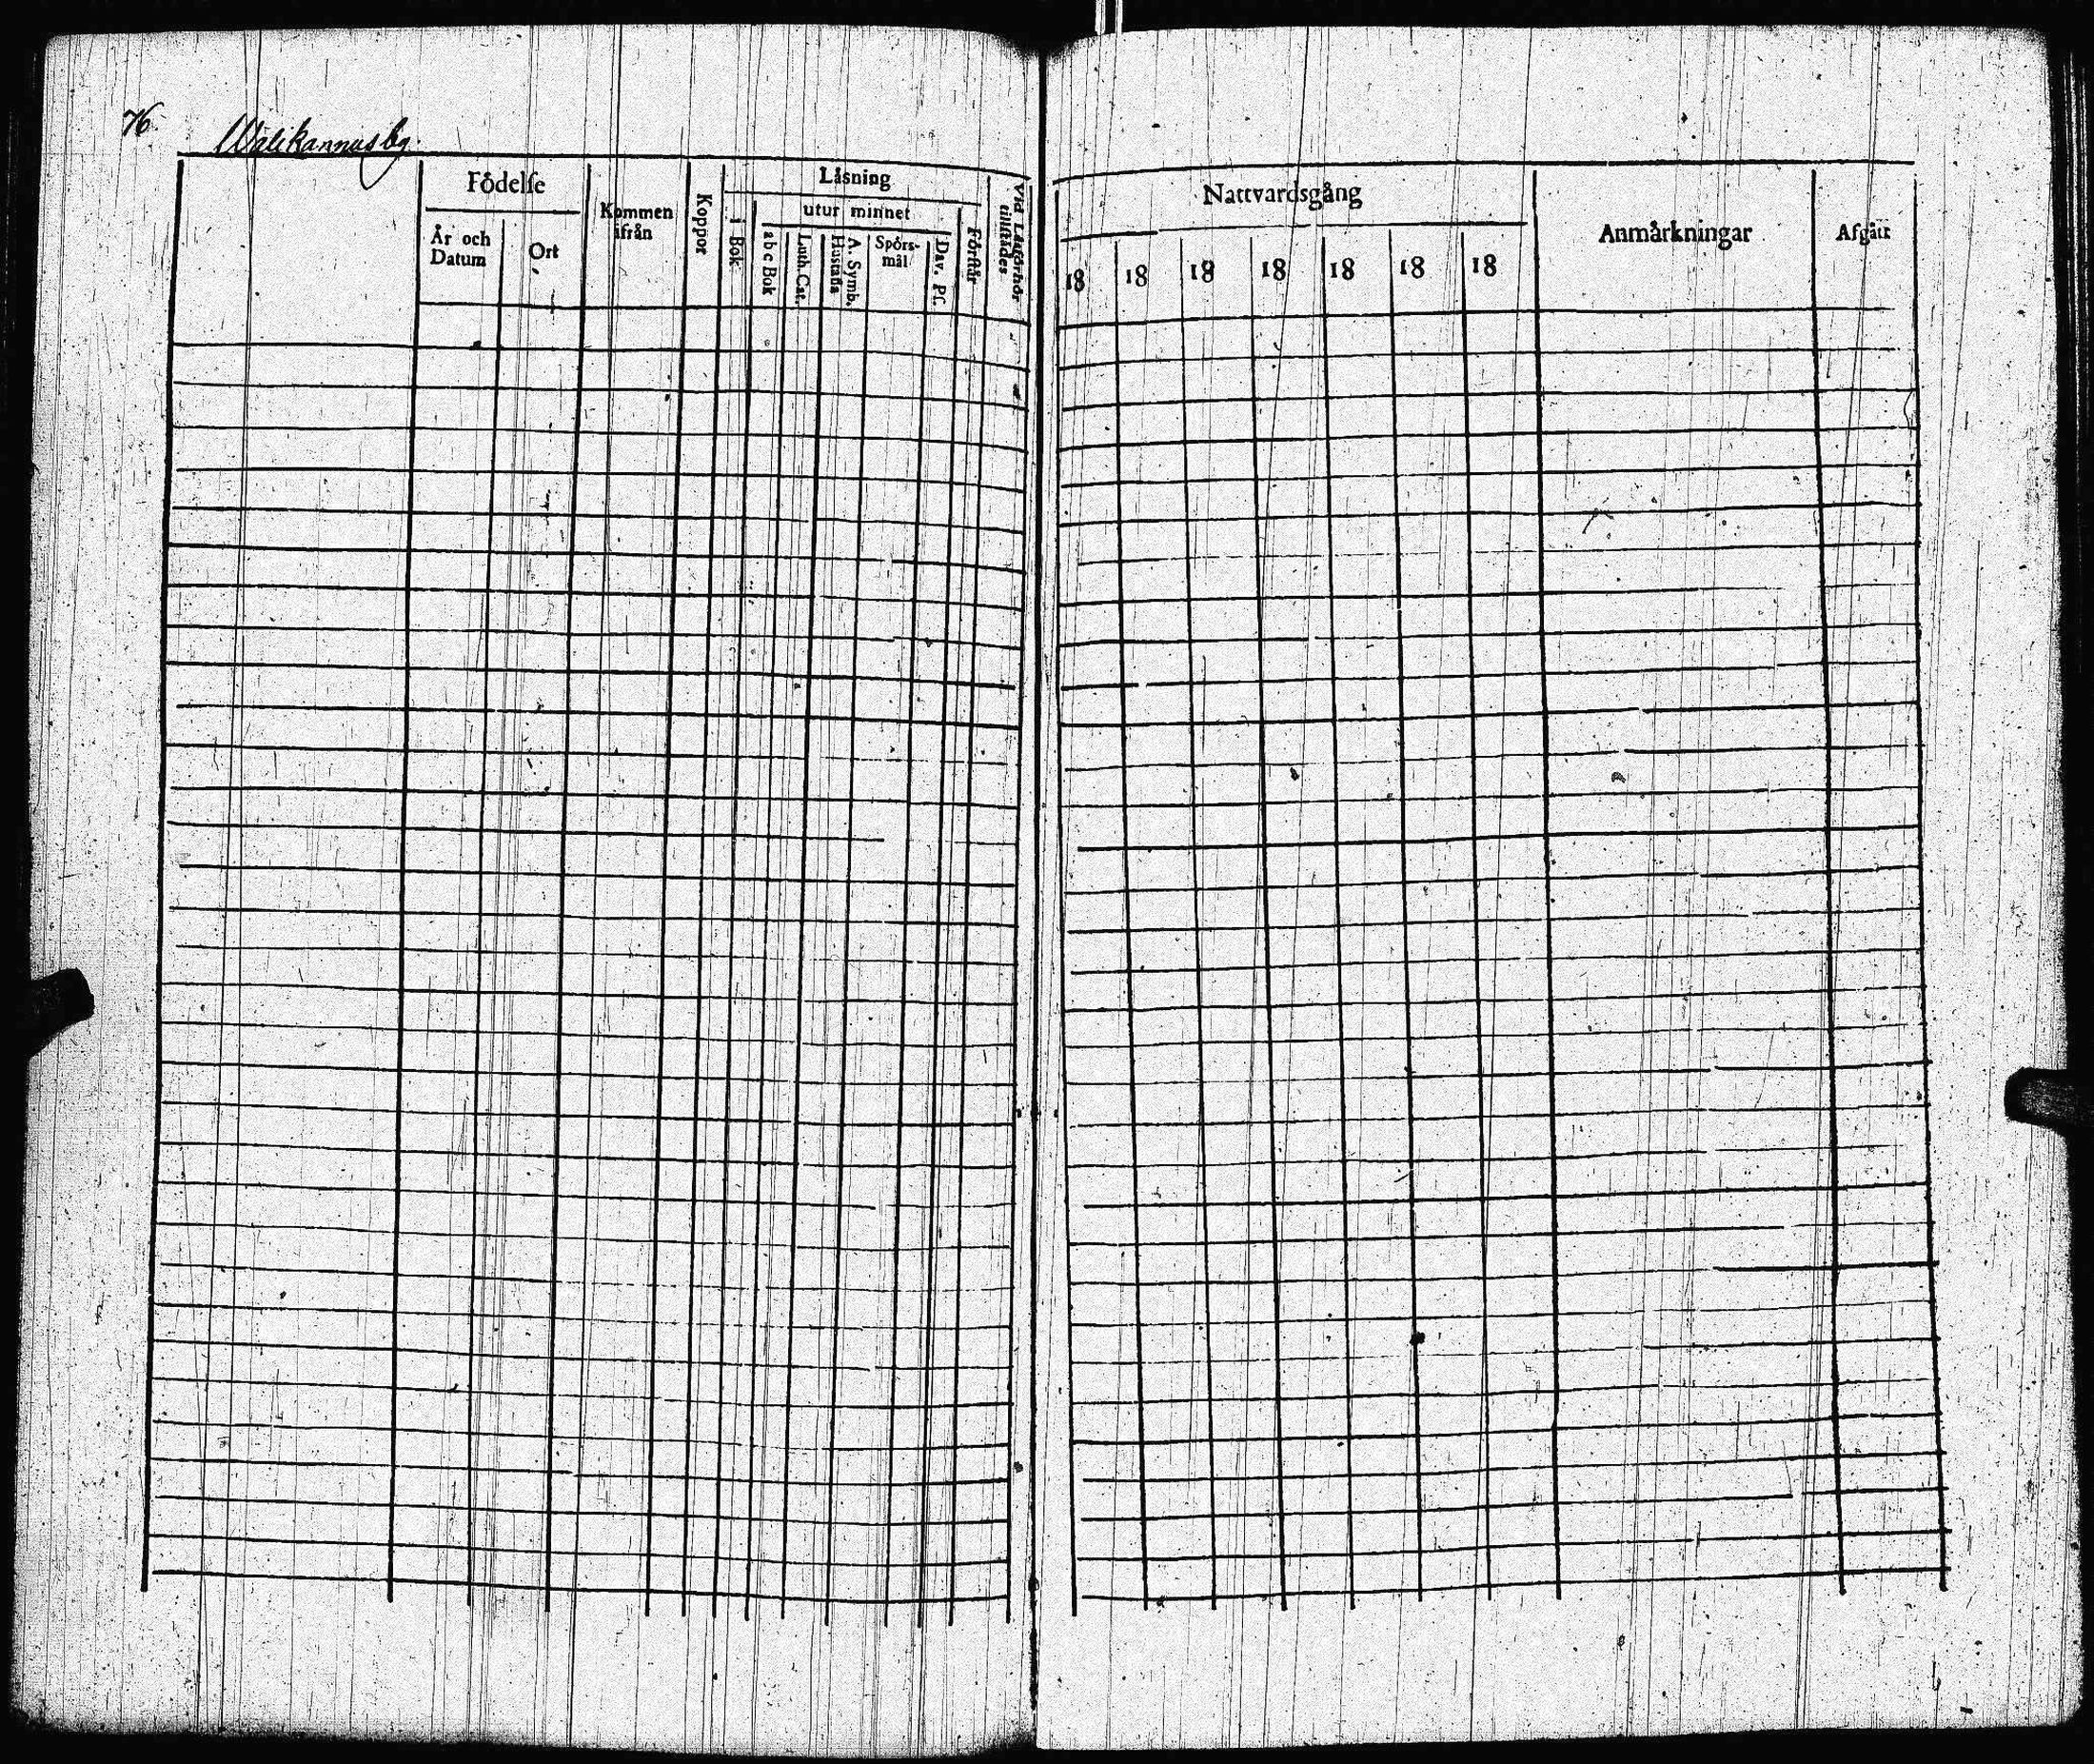 76.
Walikannus by.
Födelse
År och Datum
Ort
Kommen ifrån
Koppor
Läsning
i Bok
utur minnet
a b c Bok
Luth. Cat.
A. Symb. Hustafla
Spörs-mål
Dav. Ps.
Förstår
Vid Läsförhör tillstädes
Nattvardsgång
18 18 18 18 18 18 18
Anmärkningar
Afgått